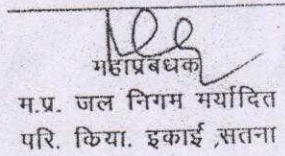 महाप्रबंधक
म.प्र. जल निगम मर्यादित
परि. किया. इकाई ,सतना